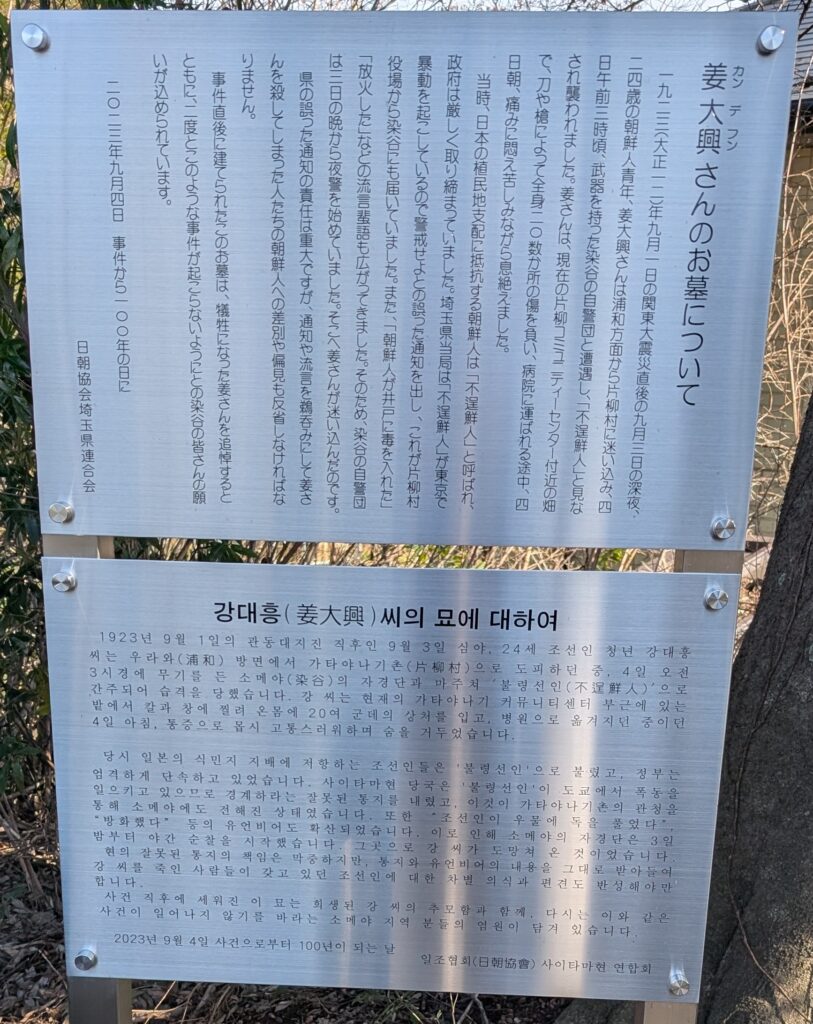 カン デ フン
姜 大興 さんのお墓について
一九二三(大正一二)年九月一日の関東大震災直後の九月三日の深夜、
二四歳の朝鮮人青年、姜大興さんは浦和方面から片柳村に迷い込み、四
日午前三時頃、武器を持った染谷の自警団と遭遇し、「不逞鮮人」と見な
され襲われました。姜さんは、現在の片柳コミュニティーセンター付近の畑
で、刀や槍によって全身二〇数か所の傷を負い、病院に運ばれる途中、四
日朝、痛みに悶え苦しみながら息絶えました。
当時、日本の植民地支配に抵抗する朝鮮人は「不逞鮮人」と呼ばれ、
政府は厳しく取り締まっていました。埼玉県当局は「不逞鮮人」が東京で
暴動を起こしているので警戒せよとの誤った通知を出し、これが片柳村
役場から染谷にも届いていました。また、「朝鮮人が井戸に毒を入れた」
「放火した」などの流言蜚語も広がってきました。そのため、染谷の自警団
は三日の晩から夜警を始めていました。そこへ姜さんが迷い込んだのです。
県の誤った通知の責任は重大ですが、通知や流言を鵜呑みにして姜さ
んを殺してしまった人たちの朝鮮人への差別や偏見も反省しなければな
りません。
事件直後に建てられたこのお墓は、犠牲になった姜さんを追悼すると
ともに、二度とこのような事件が起こらないようにとの染谷の皆さんの願
いが込められています。
二〇二三年九月四日 事件から一〇〇年の日に
日朝協会埼玉県連合会
강대흥(姜大興)씨의 묘에 대하여
1923년 9월 1일의 관동대지진 직후인 9월 3일 심야, 24세 조선인 청년 강대흥
씨는 우라와(浦和) 방면에서 가타야나기촌(片柳村)으로 도피하던 중, 4일 오전
3시경에 무기를 든 소메야(染谷)의 자경단과 마주쳐 '불령선인(不逞鮮人)'으로
간주되어 습격을 당했습니다. 강 씨는 현재의 가타야나기 커뮤니티센터 부근에 있는
밭에서 칼과 창에 찔려 온몸에 20여 군데의 상처를 입고, 병원으로 옮겨지던 중이던
4일 아침, 통증으로 몹시 고통스러워하며 숨을 거두었습니다.
당시 일본의 식민지 지배에 저항하는 조선인들은 '불령선인'으로 불렸고, 정부는
엄격하게 단속하고 있었습니다. 사이타마현 당국은 '불령선인'이 도쿄에서 폭동을
일으키고 있으므로 경계하라는 잘못된 통지를 내렸고, 이것이 가타야나기촌의 관청을
통해 소메야에도 전해진 상태였습니다. 또한 "조선인이 우물에 독을 풀었다",
"방화했다" 등의 유언비어도 확산되었습니다. 이로 인해 소메야의 자경단은 3일
밤부터 야간 순찰을 시작했습니다. 그곳으로 강 씨가 도망쳐 온 것이었습니다.
현의 잘못된 통지의 책임은 막중하지만, 통지와 유언비어의 내용을 그대로 받아들여
강 씨를 죽인 사람들이 갖고 있던 조선인에 대한 차별 의식과 편견도 반성해야만
합니다.
사건 직후에 세워진 이 묘는 희생된 강 씨의 추모함과 함께, 다시는 이와 같은
사건이 일어나지 않기를 바라는 소메야 지역 분들의 염원이 담겨 있습니다.
2023년 9월 4일 사건으로부터 100년이 되는 날
일조협회(日朝協會) 사이타마현 연합회